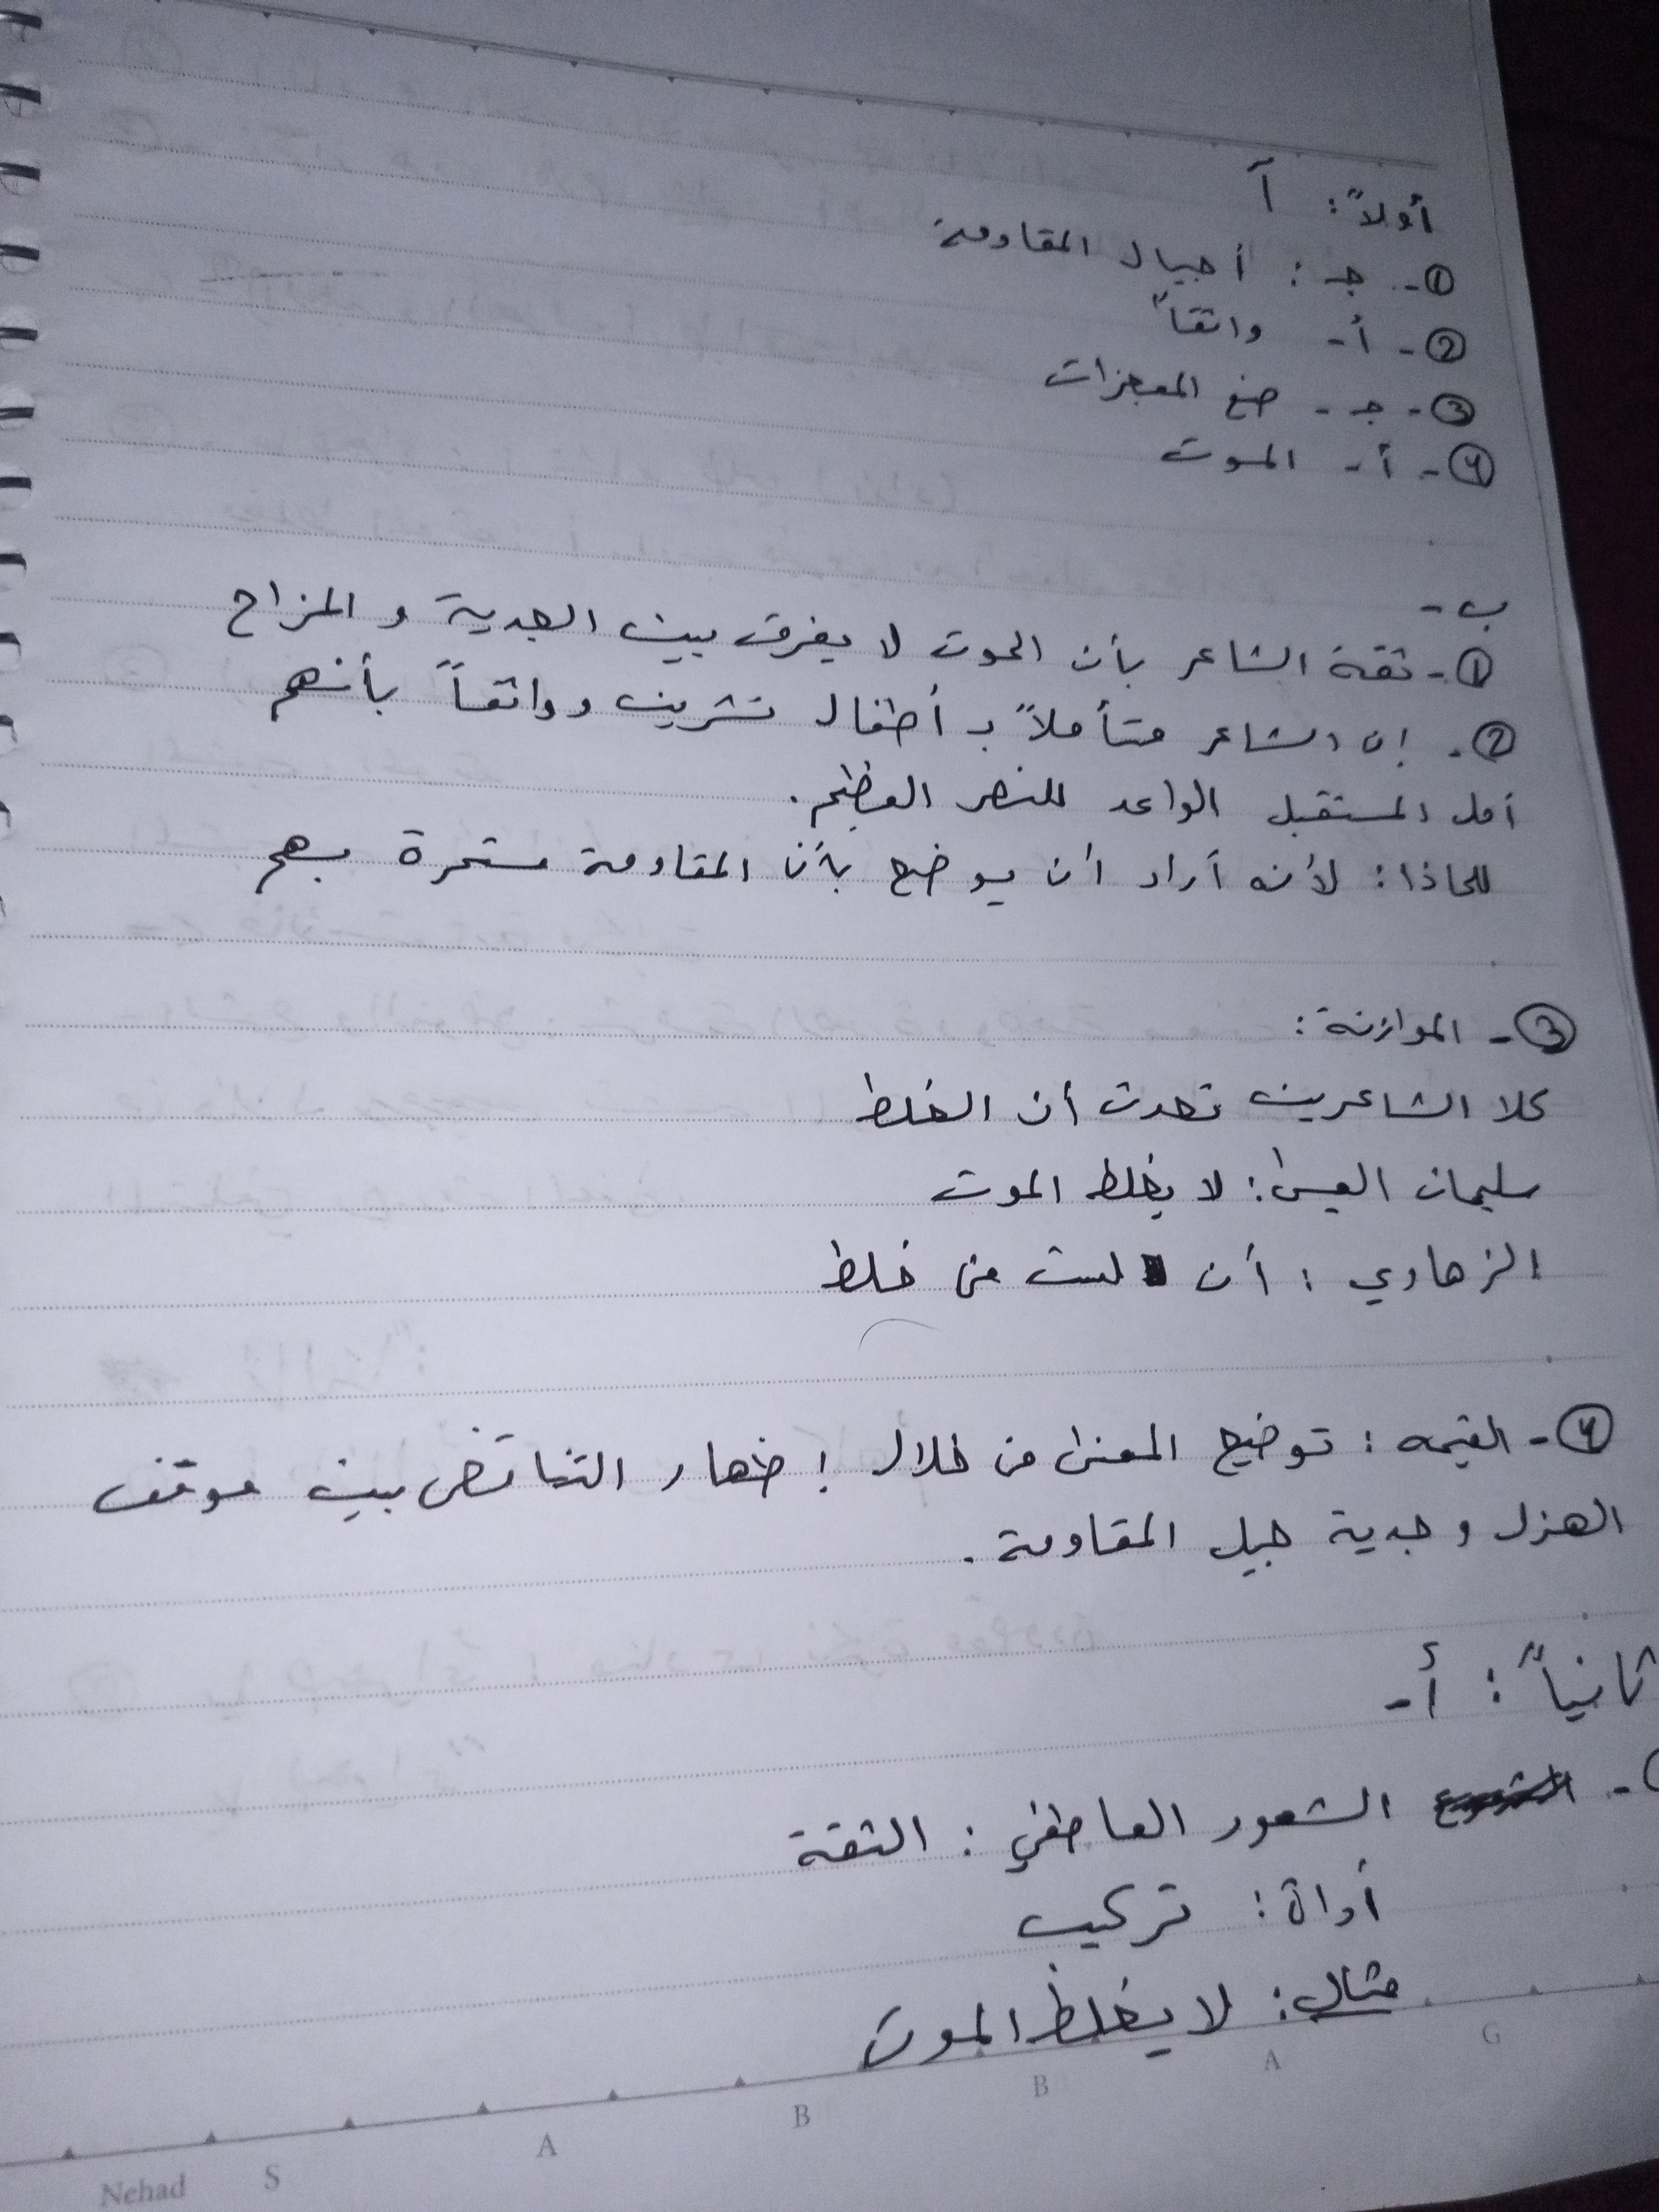 أولاً: آ
①- جـ: أجيال المقاومة
②- أ- واثقاً
③- جـ- صنع المعجزات
④- أ- الموت
ب-
①- ثقة الشاعر بأن الموت لا يفرق بين الجدية و المزاح
②- إن الشاعر متأملاً بـ أطفال تشرين وواثقاً بأنهم
أمل المستقبل الواعد للنصر العظيم.
لماذا: لأنه أراد أن يوضح بأن المقاومة مستمرة بهم
③- الموازنة:
كلا الشاعرين تحدث أن الغلط
سليمان العيسى: لا يغلط الموت
الزهاوي: أن لست من غلط
④- القيمه: توضيح المعنى من خلال إظهار التناقض بين موقف
الهزل و جدية جيل المقاومة.
ثانياً: أ-
- الشعور العاطفي: الثقة
أداة: تركيب
مثال: لا يغلط الموت
G A B B A S Nehad